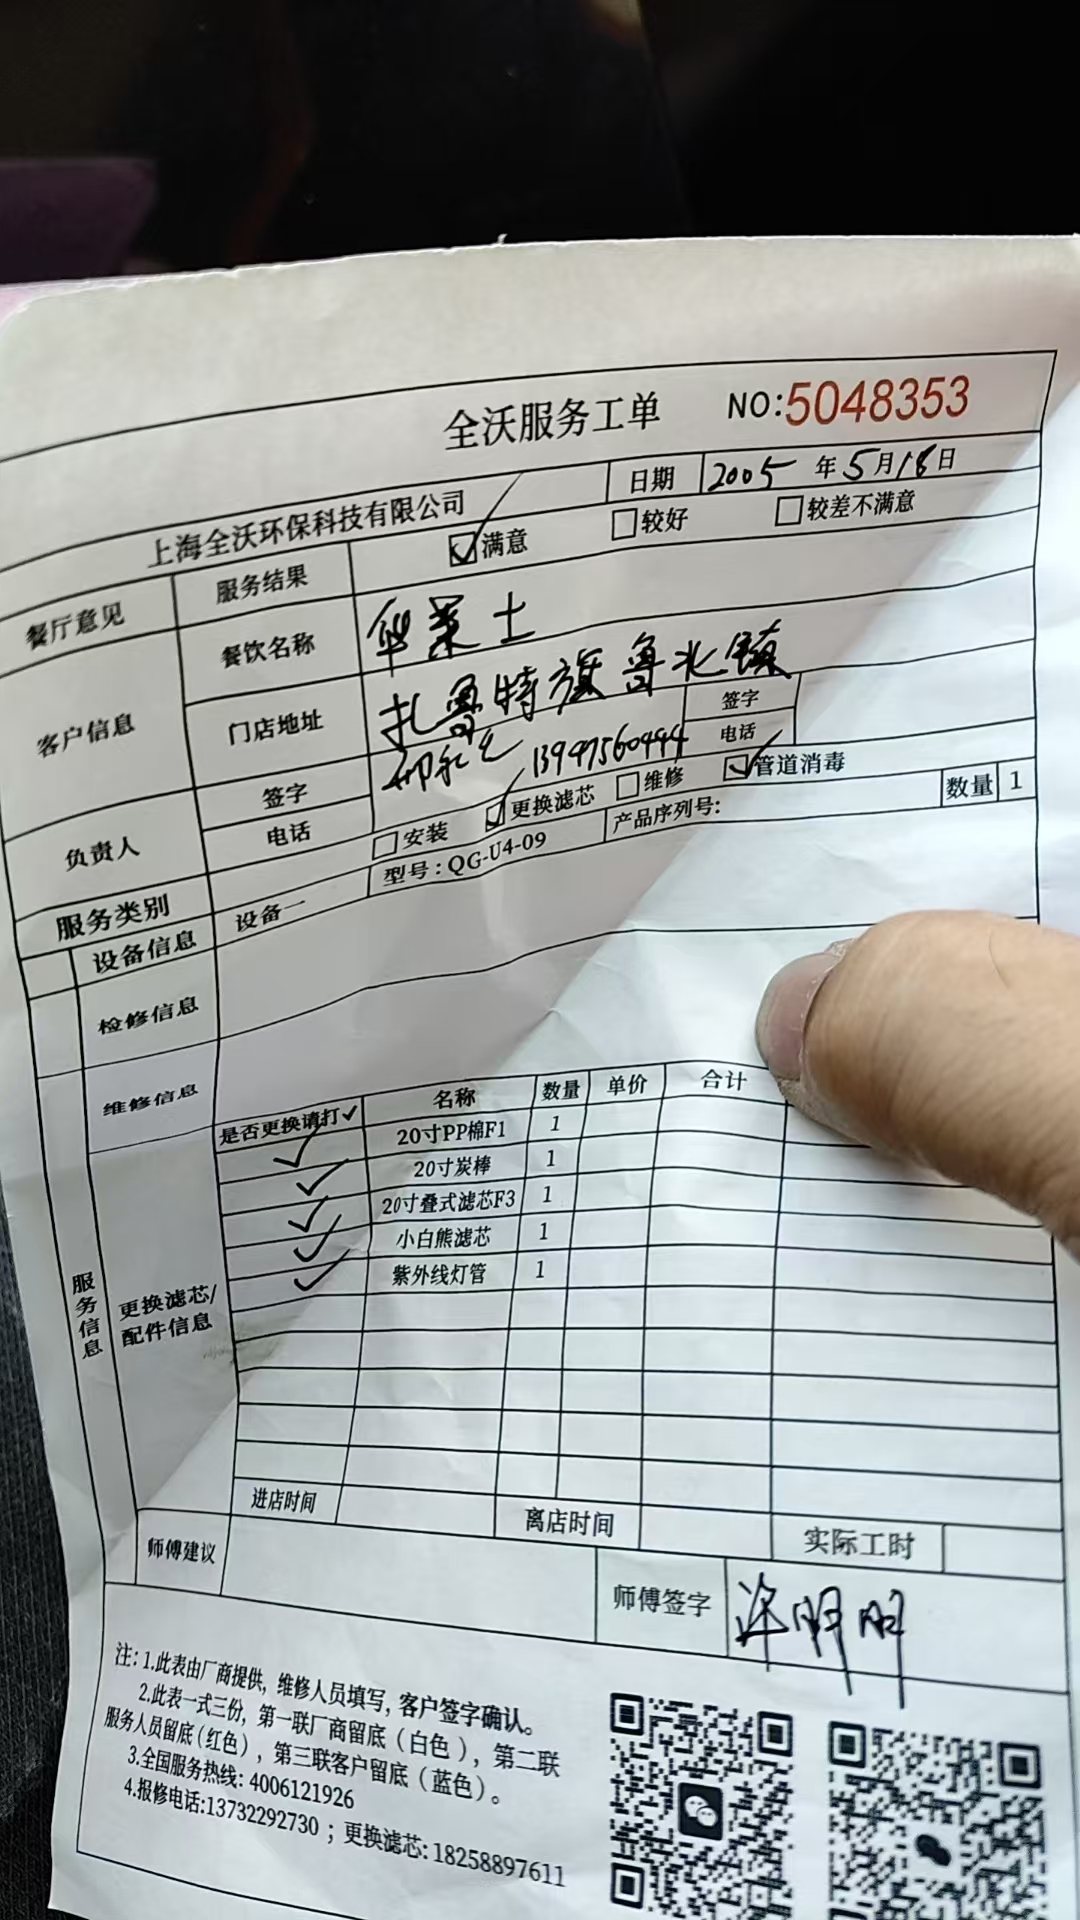 全沃服务工单 NO:5048353
上海全沃环保科技有限公司 日期 2005年5月18日
餐厅意见 服务结果 满意 较好 较差不满意
客户信息 餐饮名称 华莱士
门店地址 扎鲁特旗鲁北镇
负责人 签字 签字
电话 13947560444 电话
服务类别 安装 更换滤芯 维修 管道消毒
设备信息 设备一 型号:QG-U4-09 产品序列号: 数量 1
检修信息
维修信息
服务信息
更换滤芯/配件信息
是否更换请打✓ 名称 数量 单价 合计
✓ 20寸PP棉F1 1
✓ 20寸炭棒 1
✓ 20寸叠式滤芯F3 1
✓ 小白熊滤芯 1
✓ 紫外线灯管 1
进店时间 离店时间 实际工时
师傅建议 师傅签字 明明
注:1.此表由厂商提供,维修人员填写,客户签字确认。
2.此表一式三份,第一联厂商留底(白色),第二联
服务人员留底(红色),第三联客户留底(蓝色)。
3.全国服务热线:4006121926
4.报修电话:13732292730;更换滤芯:18258897611